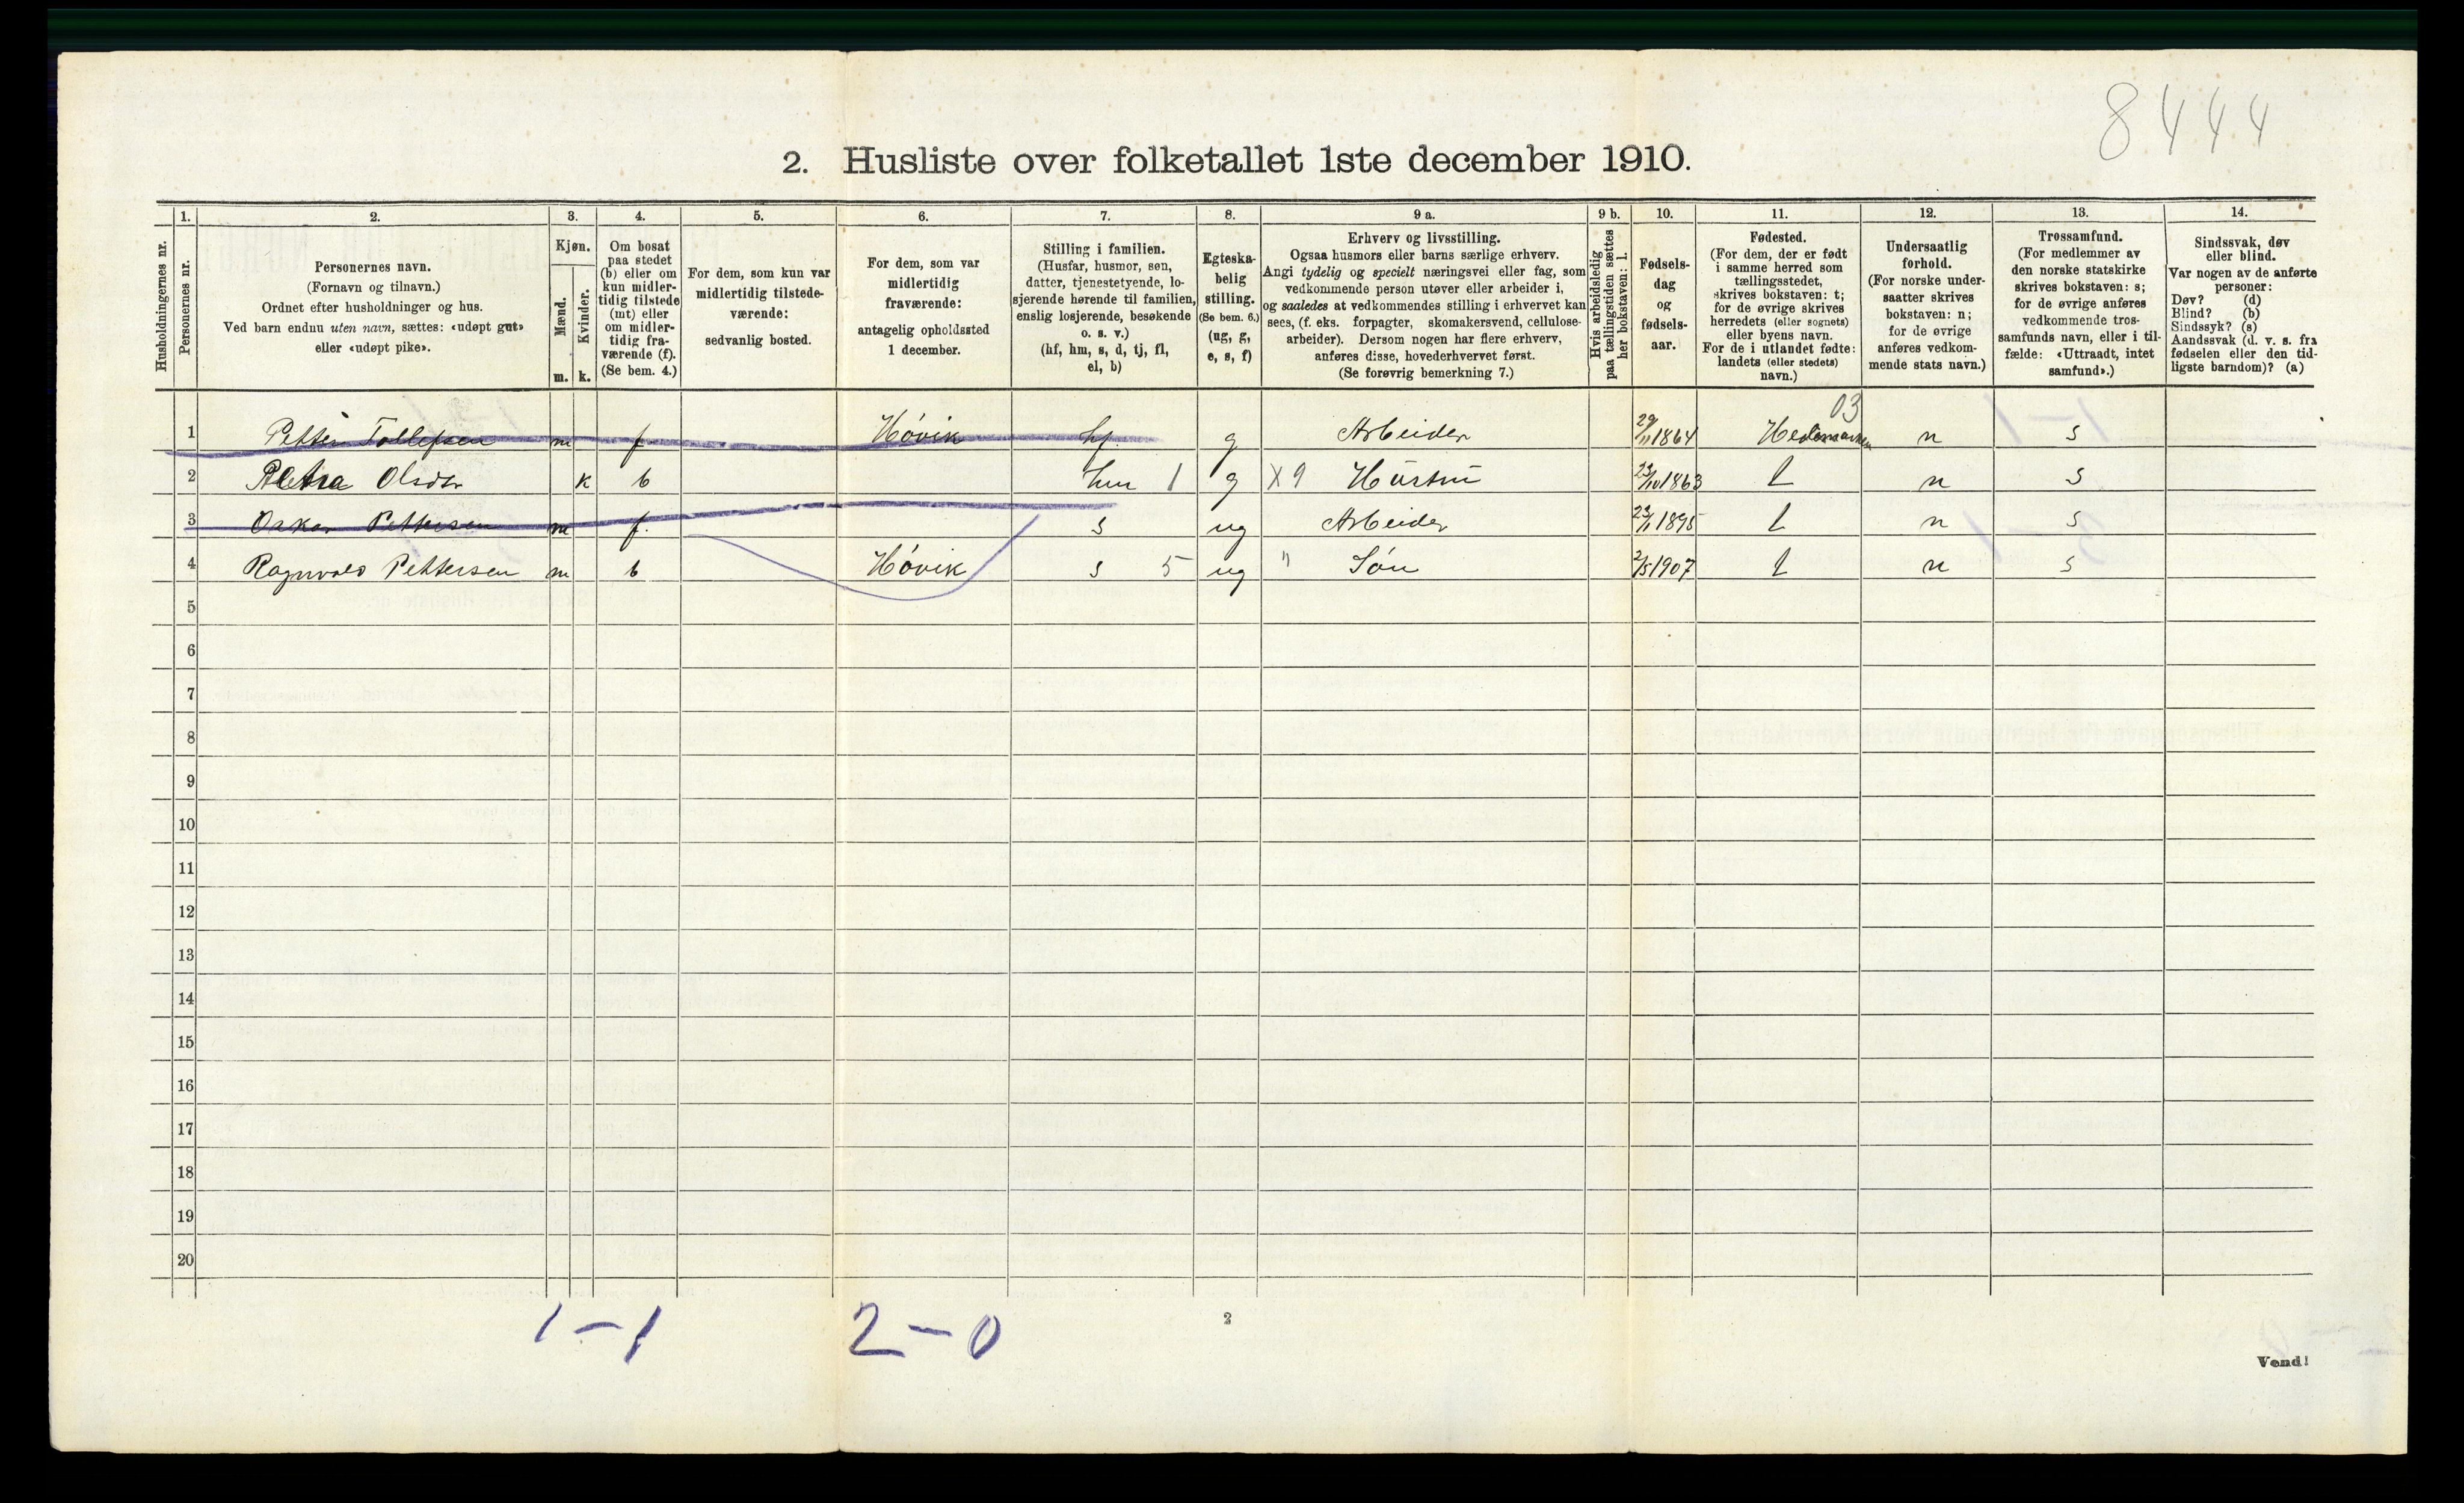 8444
2. Husliste over folketallet 1ste december 1910.
Husholdningernes nr.
1.
Personernes nr.
2.
Personernes navn.
(Fornavn og tilnavn.)
Ordnet efter husholdninger og hus.
Ved barn endnu uten navn, sættes: «udøpt gut»
eller «udøpt pike».
3.
Kjøn.
Mænd.
m.
Kvinder.
k.
4.
Om bosat
paa stedet
(b) eller om
kun midler-
tidig tilstede
(mt) eller
om midler-
tidig fra-
værende (f).
(Se bem. 4.)
5.
For dem, som kun var
midlertidig tilstede-
værende:
sedvanlig bosted.
6.
For dem, som var
midlertidig
fraværende:
antagelig opholdssted
1 december.
7.
Stilling i familien.
(Husfar, husmor, søn,
datter, tjenestetyende, lo-
sjerende hørende til familien,
enslig losjerende, besøkende
o. s. v.)
(hf, hm, s, d, tj, fl,
el, b)
8.
Egteska-
belig
stilling.
(Se bem. 6.)
(ug, g,
e, s, f)
9 a.
Erhverv og livsstilling.
Ogsaa husmors eller barns særlige erhverv.
Angi tydelig og specielt næringsvei eller fag, som
vedkommende person utøver eller arbeider i,
og saaledes at vedkommendes stilling i erhvervet kan
sees, (f. eks. forpagter, skomakersvend, cellulose-
arbeider). Dersom nogen har flere erhverv,
anføres disse, hovederhvervet først.
(Se forøvrig bemerkning 7.)
9 b.
Hvis arbeidsledig
paa tællingstiden sættes
her bokstaven: l.
10.
Fødsels-
dag
og
fødsels-
aar.
11.
Fødested.
(For dem, der er født
i samme herred som
tællingsstedet,
skrives bokstaven: t;
for de øvrige skrives
herredets (eller sognets)
eller byens navn.
For de i utlandet fødte:
landets (eller stedets)
navn.)
12.
Undersaatlig
forhold.
(For norske under-
saatter skrives
bokstaven: n;
for de øvrige
anføres vedkom-
mende stats navn.)
13.
Trossamfund.
(For medlemmer av
den norske statskirke
skrives bokstaven: s;
for de øvrige anføres
vedkommende tros-
samfunds navn, eller i til-
fælde: «Uttraadt, intet
samfund».)
14.
Sindssvak, døv
eller blind.
Var nogen av de anførte
personer:
Døv? (d)
Blind? (b)
Sindssyk? (s)
Aandssvak (d. v. s. fra
fødselen eller den tid-
ligste barndom)? (a)
03
1 Petter Tollefsen m f Høvik hf. g Arbeider 29/11 1864 Hedemarken n s
2 Petra Olsdtr k b hm 1 g X 9 Hustru 23/10 1863 t n s
3 Oskar Pettersen m f. s ug Arbeider 23/1 1895 t n s
4 Ragnvald Pettersen m b Høvik s 5 ug " Søn 2/5 1907 t n s
5
6
7
8
9
10
11
12
13
14
15
16
17
18
19
20
1-1 2-0
2
Vend!